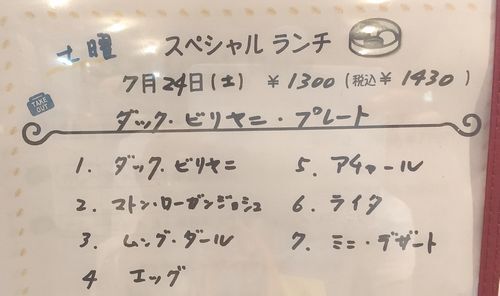 土曜 スペシャル ランチ
7月24日(土) ¥1300(税込¥1430)
TAKE OUT
ダック・ビリヤニ・プレート
1. ダック・ビリヤニ
2. マトン・ローガンジョシュ
3. ムング・ダール
4 エッグ
5. アチャール
6. ライタ
7. ミニ・デザート